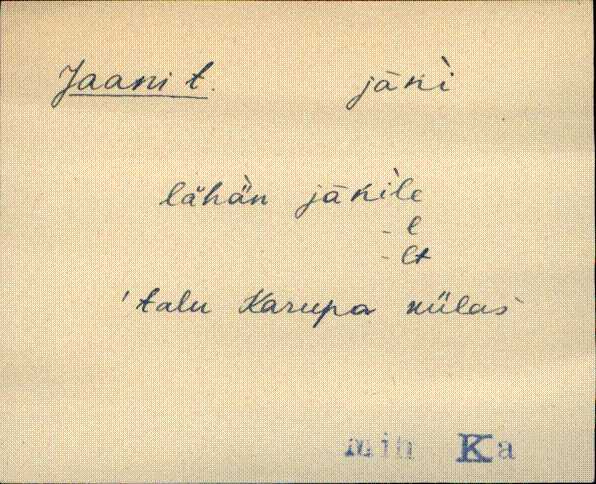 Jaani t. jāǹi
lähän jāǹile
- l
- lt
'talu Karupa külas
mih Ka